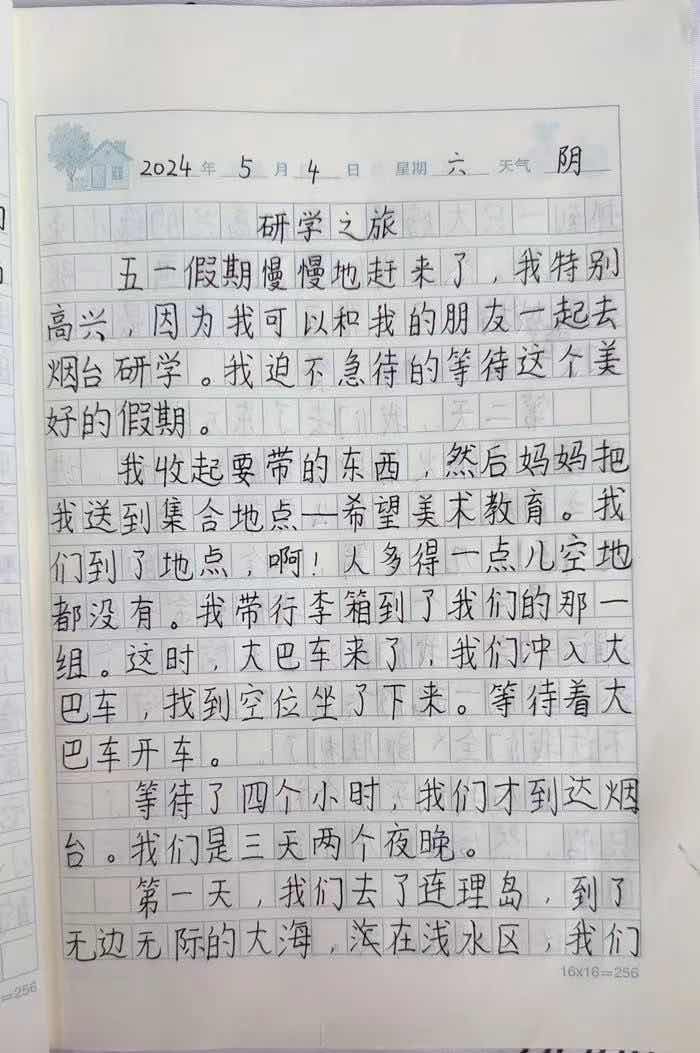 2024年 5月 4日 星期 六 天气 阴
研学之旅
五一假期慢慢地赶来了，我特别
高兴，因为我可以和我的朋友一起去
烟台研学。我迫不急待的等待这个美
好的假期。
我收起要带的东西，然后妈妈把
我送到集合地点—希望美术教育。我
们到了地点，啊！人多得一点儿空地
都没有。我带行李箱到了我们的那一
组。这时，大巴车来了，我们冲入大
巴车，找到空位坐了下来。等待着大
巴车开车。
等待了四个小时，我们才到达烟
台。我们是三天两个夜晚。
第一天，我们去了连理岛，到了
无边无际的大海，在浅水区，我们
16×16=256
=256